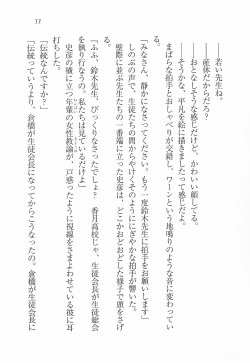 11
――若い先生ね。
――産休だからだろ？
――おとなしそうな感じだけど、かわいい顔してる。
――そうかな、平凡を絵に描きましたって感じだよ。
まばらな拍手とおしゃべりが交錯し、ワーンという地鳴りのような音に変わってい
る。
「みなさん、静かになさってください。もう一度鈴木先生に拍手をお願いします」
しのぶの声で、生徒たちからそのつどにぎやかな拍手が響いた。
壁際に並ぶ先生たちの一番端に立つ史彦は、どこかおどおどした様子で頭をさげ
る。
「ふふ、鈴木先生、びっくりなさったでしょ？　香月高校じゃ、生徒会が生徒総会
を執り行なうの。私たちは見ているだけ」
史彦の横に立つ年輩の女性教諭が、戸惑ったように視線をさまよわせている彼に耳
打ちした。
「伝統なんですか？」
「伝統っていうより、倉橋が生徒会長になってからこうなったの。倉橋が生徒会長に